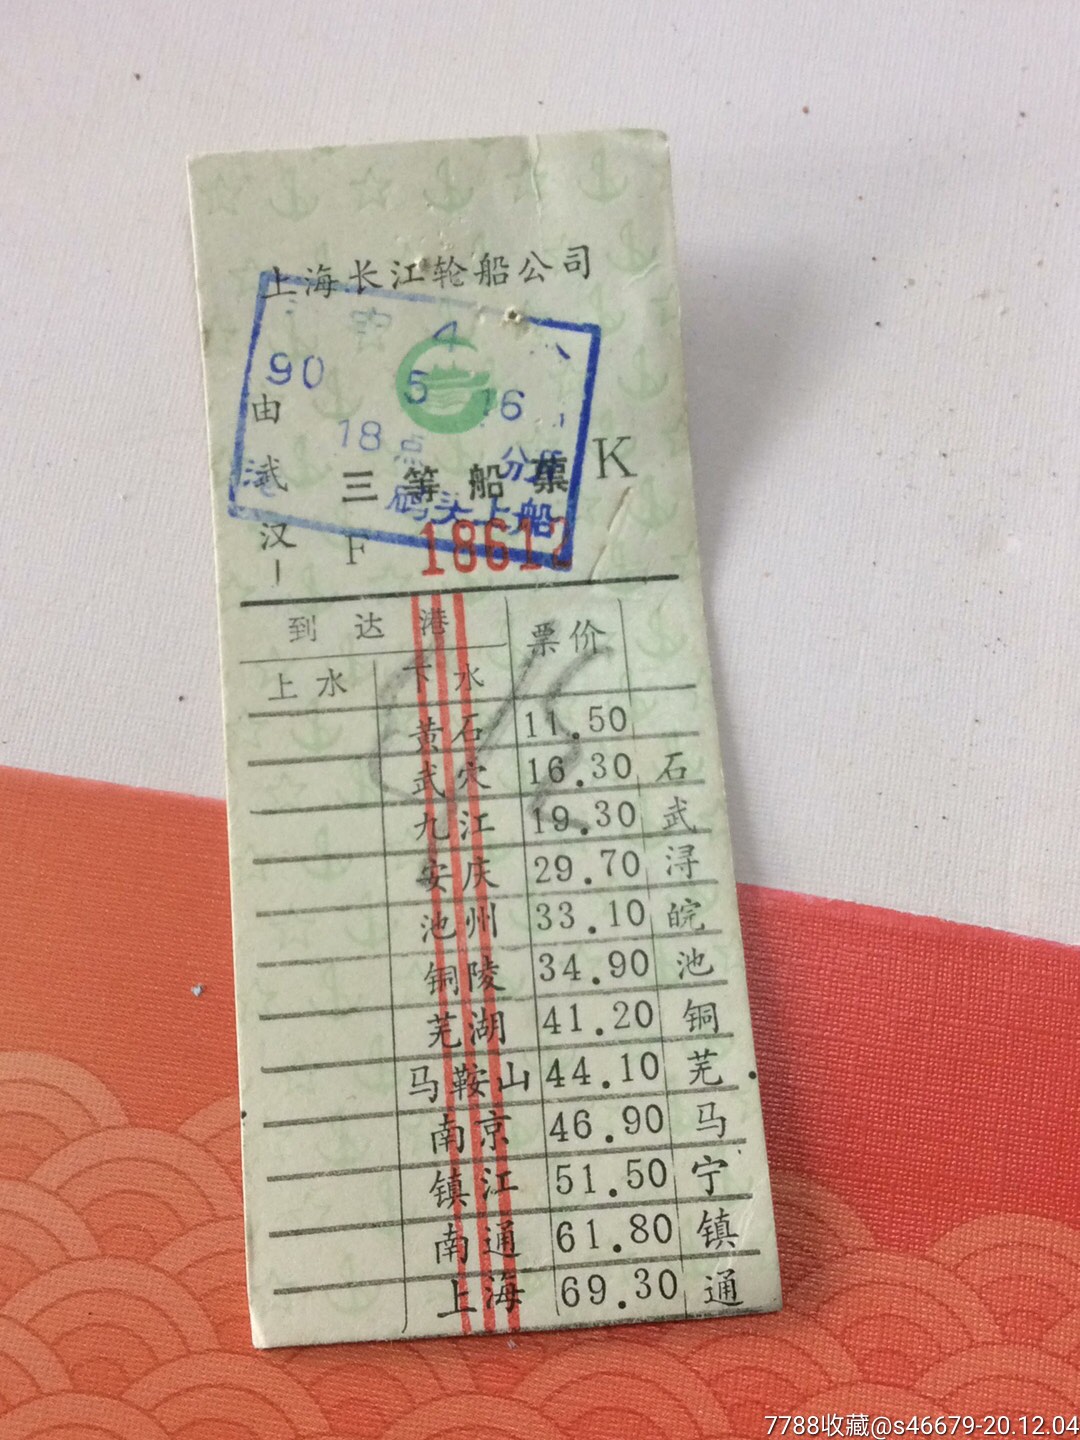 上海长江轮船公司
90 4
5 16
18点 分
码头上船
由武汉
三等船票 K
F 18612
到达港 票价
上水 下水
黄石 11.50
武穴 16.30 石
九江 19.30 武
安庆 29.70 浔
池州 33.10 皖
铜陵 34.90 池
芜湖 41.20 铜
马鞍山 44.10 芜
南京 46.90 马
镇江 51.50 宁
南通 61.80 镇
上海 69.30 通
7788收藏@s46679-20.12.04